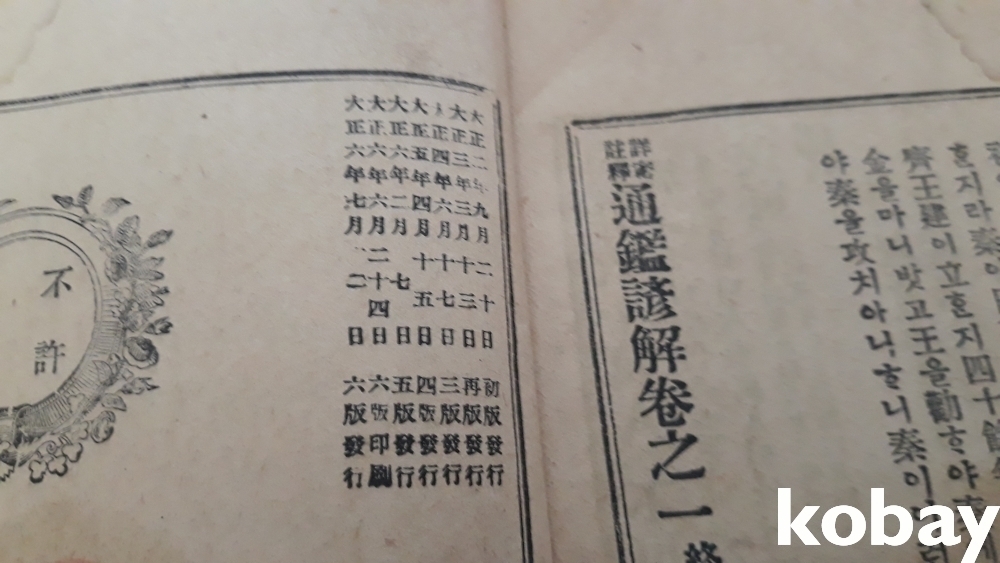 야秦을攻치아니하니秦이
金을마니밧고王을勸하야
齊王建이立한지四十餘
한지라秦이
詳密
註釋
通鑑諺解卷之一終
大正二年九月二十日 初版發行
大正三年三月十三日 再版發行
大正四年六月十七日 三版發行
大正五年四月十五日 四版發行
大正六年二月七日 五版發行
大正六年六月二十四日 六版印刷
大正六年七月二日 六版發行
不許
kobay